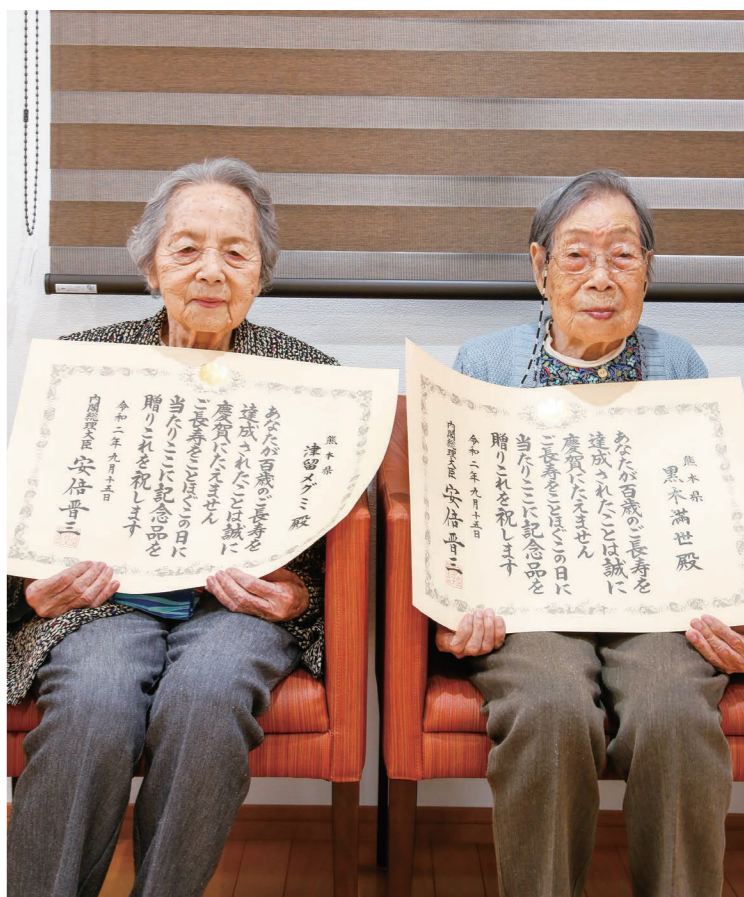 熊本県
津留メグミ殿
あなたが百歳のご長寿を
達成されたことは誠に
慶賀にたえません
ご長寿をことほぐこの日に
当たりここに記念品を
贈りこれを祝します
令和二年九月十五日
内閣総理大臣 安倍晋三
熊本県
黒木満世殿
あなたが百歳のご長寿を
達成されたことは誠に
慶賀にたえません
ご長寿をことほぐこの日に
当たりここに記念品を
贈りこれを祝します
令和二年九月十五日
内閣総理大臣 安倍晋三